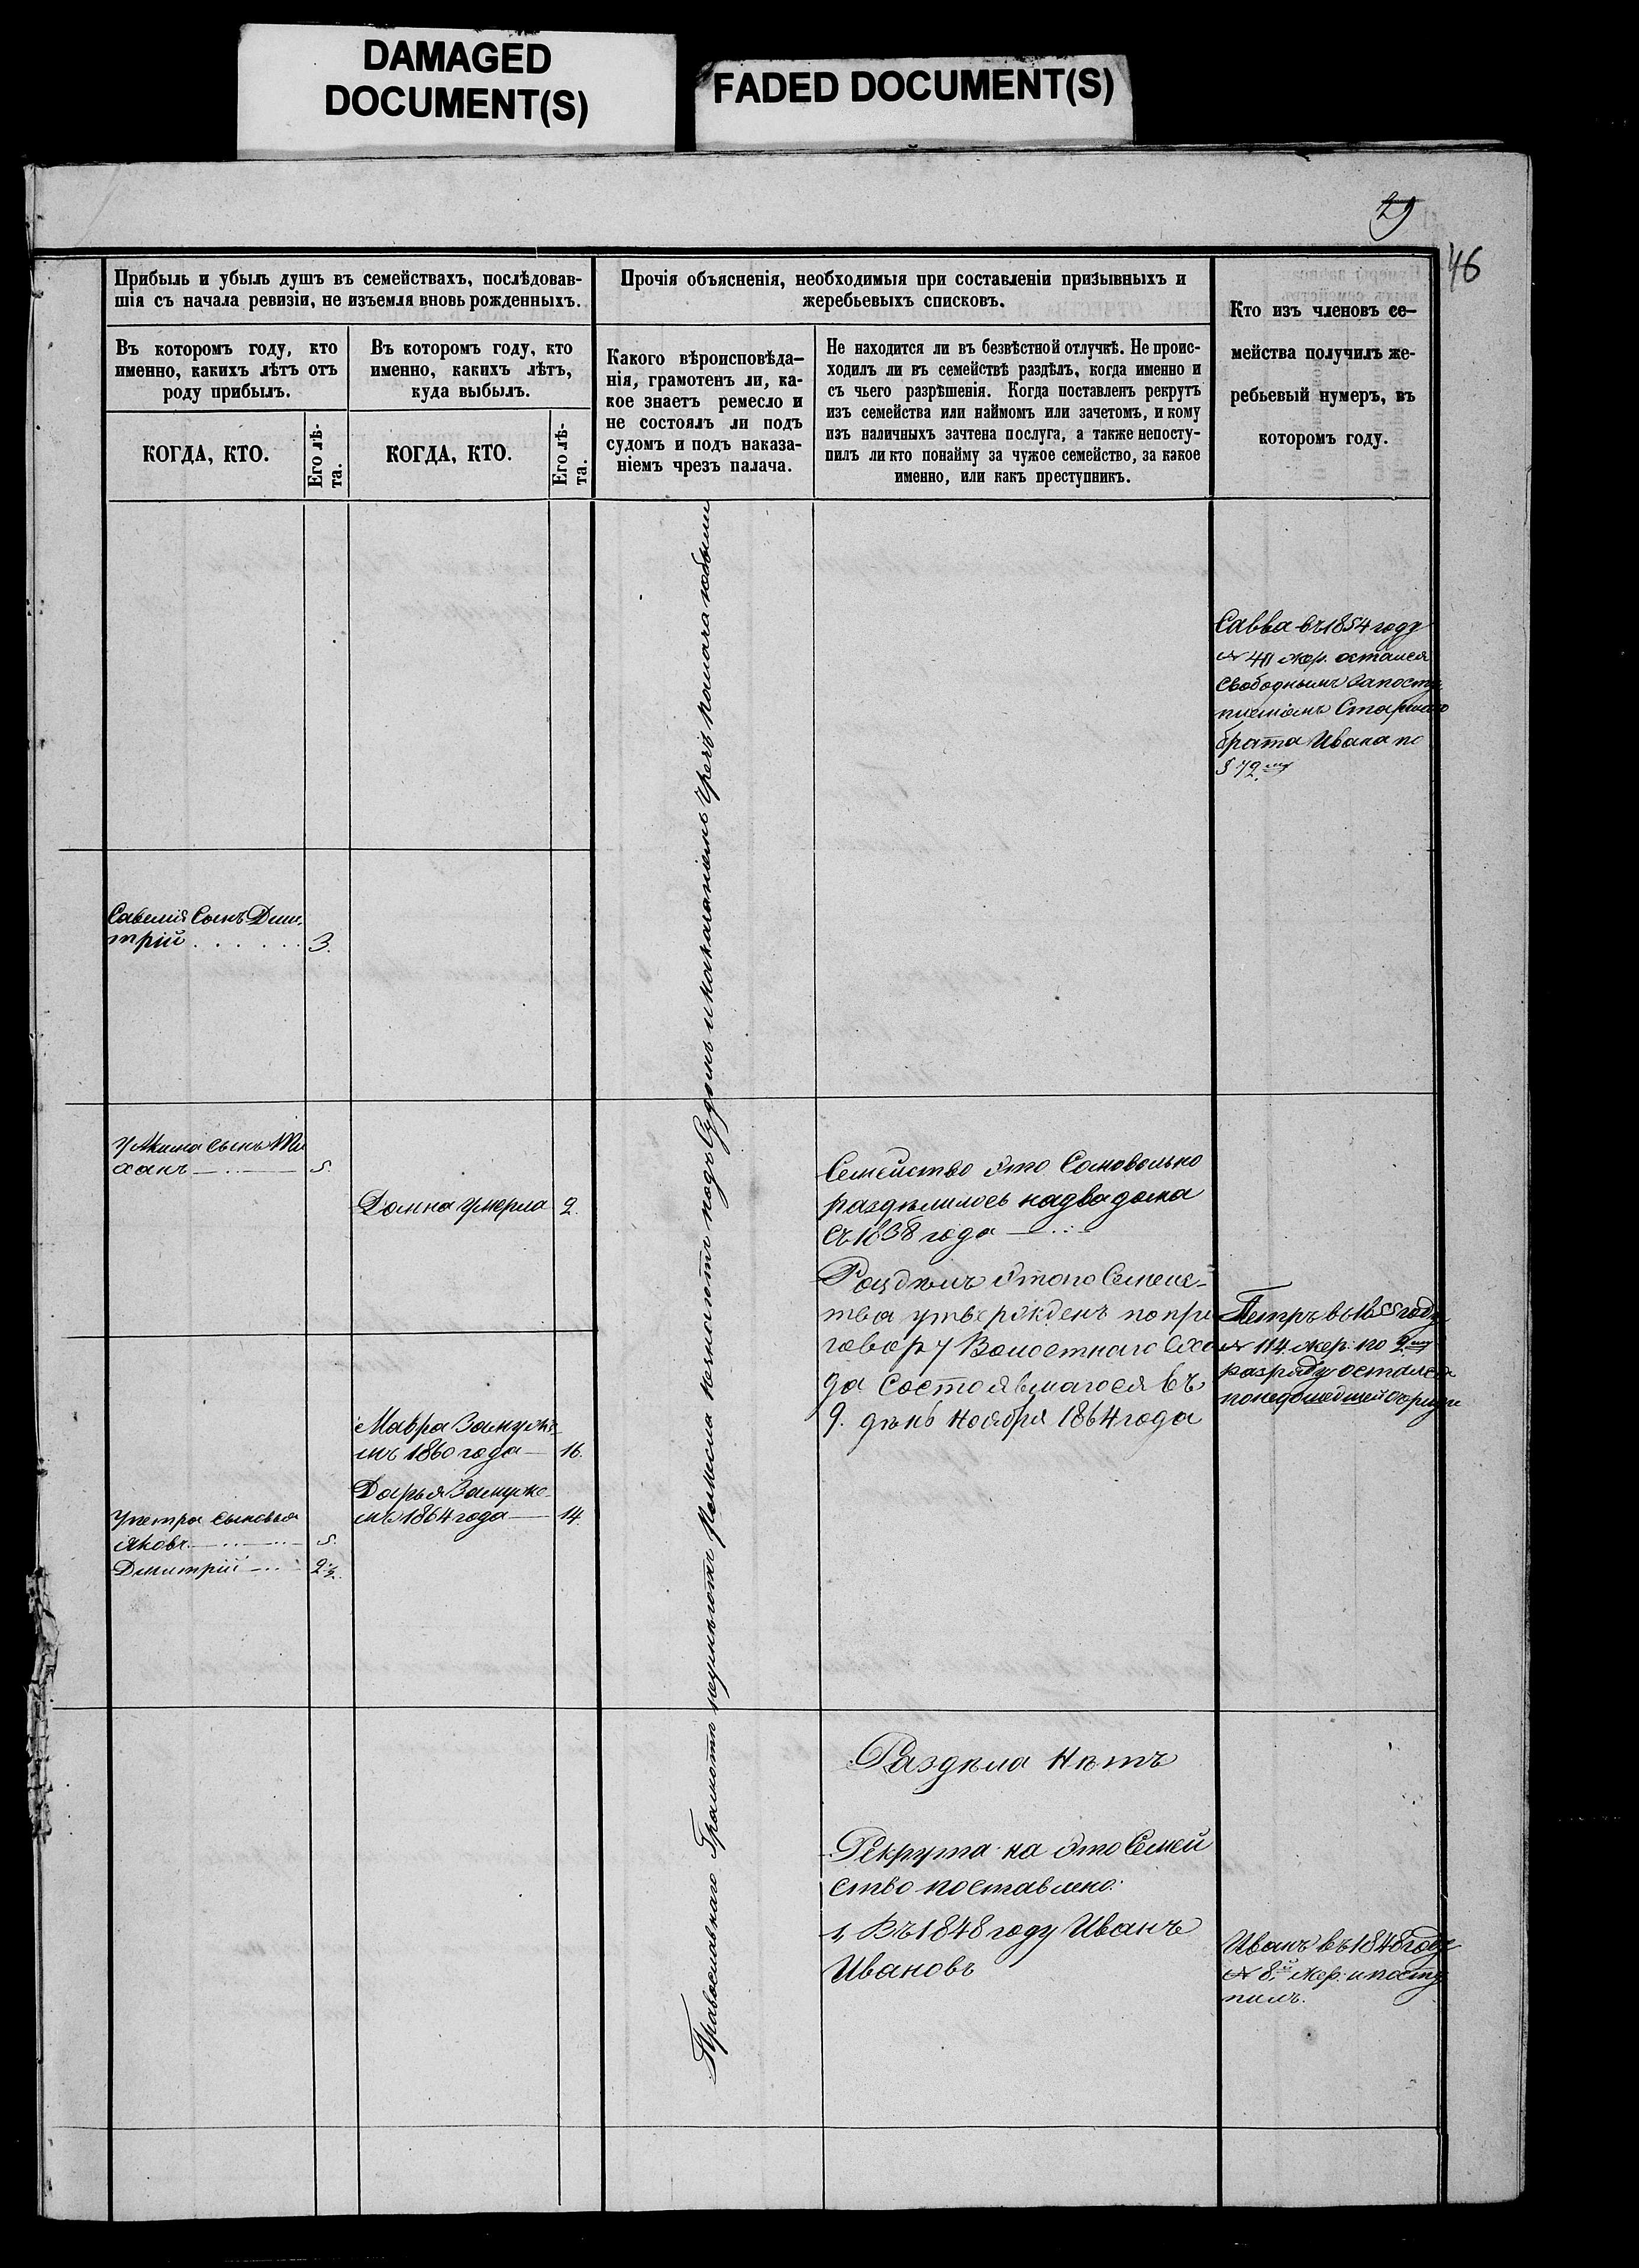 DAMAGED
DOCUMENT(S)
FADED DOCUMENT(S)
29
46
Прибыль и убыль душъ въ семействахъ, послѣдовав-
шія съ начала ревизіи, не изъемля вновь рожденныхъ.
Въ которомъ году, кто
именно, какихъ лѣтъ отъ
роду прибылъ.
КОГДА, КТО.
Его лѣ-
та.
Въ которомъ году, кто
именно, какихъ лѣтъ,
куда выбылъ.
КОГДА, КТО.
Его лѣ-
та.
Прочія объясненія, необходимыя при составленіи призывныхъ и
жеребьевыхъ списковъ.
Какого вѣроисповѣда-
нія, грамотенъ ли, ка-
кое знаетъ ремесло и
не состоялъ ли подъ
судомъ и подъ наказа-
ніемъ чрезъ палача.
Не находится ли въ безвѣстной отлучкѣ. Не проис-
ходилъ ли въ семействѣ раздѣлъ, когда именно и
съ чьего разрѣшенія. Когда поставленъ рекрутъ
изъ семейства или наймомъ или зачетомъ, и кому
изъ наличныхъ зачтена послуга, а также непосту-
пилъ ли кто понайму за чужое семейство, за какое
именно, или какъ преступникъ.
Кто изъ членовъ се-
мейства получилъ же-
ребьевый нумеръ, въ
которомъ году.
Савва въ 1854 году
№ жер. остался
свободнымъ запосту
пленіемъ Старшаго
брата Ивана по
§
Савелія Сынъ Дми
трій 3.
У Акима сынъ
5.
Домна умерла 2.
Семейство это Самовольно
раздѣлилось надва дома
съ 1838 года
Раздѣлъ этого Семейс-
тва утвержденъ попри
говору Волостнаго Схо
да Состоявшагося въ
9. день Ноября 1864 года
Петръ въ 1855 году
№ 114. жер. по 2му
разряду остался
понедошедшей очереди
Мавра Замуже
мъ 1860 года 16.
Дарья Замуже
мъ 1864 года 14.
У петра сыновья
Яковъ 5.
Дмитрій
Православнаго Грамотѣ неумѣютъ подъ Судомъ и наказаніемъ Чрезъ палача небыли
Раздѣла нѣтъ
Рекрута на это Семей
ство поставлено:
1, Въ 1848 году Иванъ
Ивановъ
Иванъ въ 1848 году
№ 8. жер. и посту
пилъ.